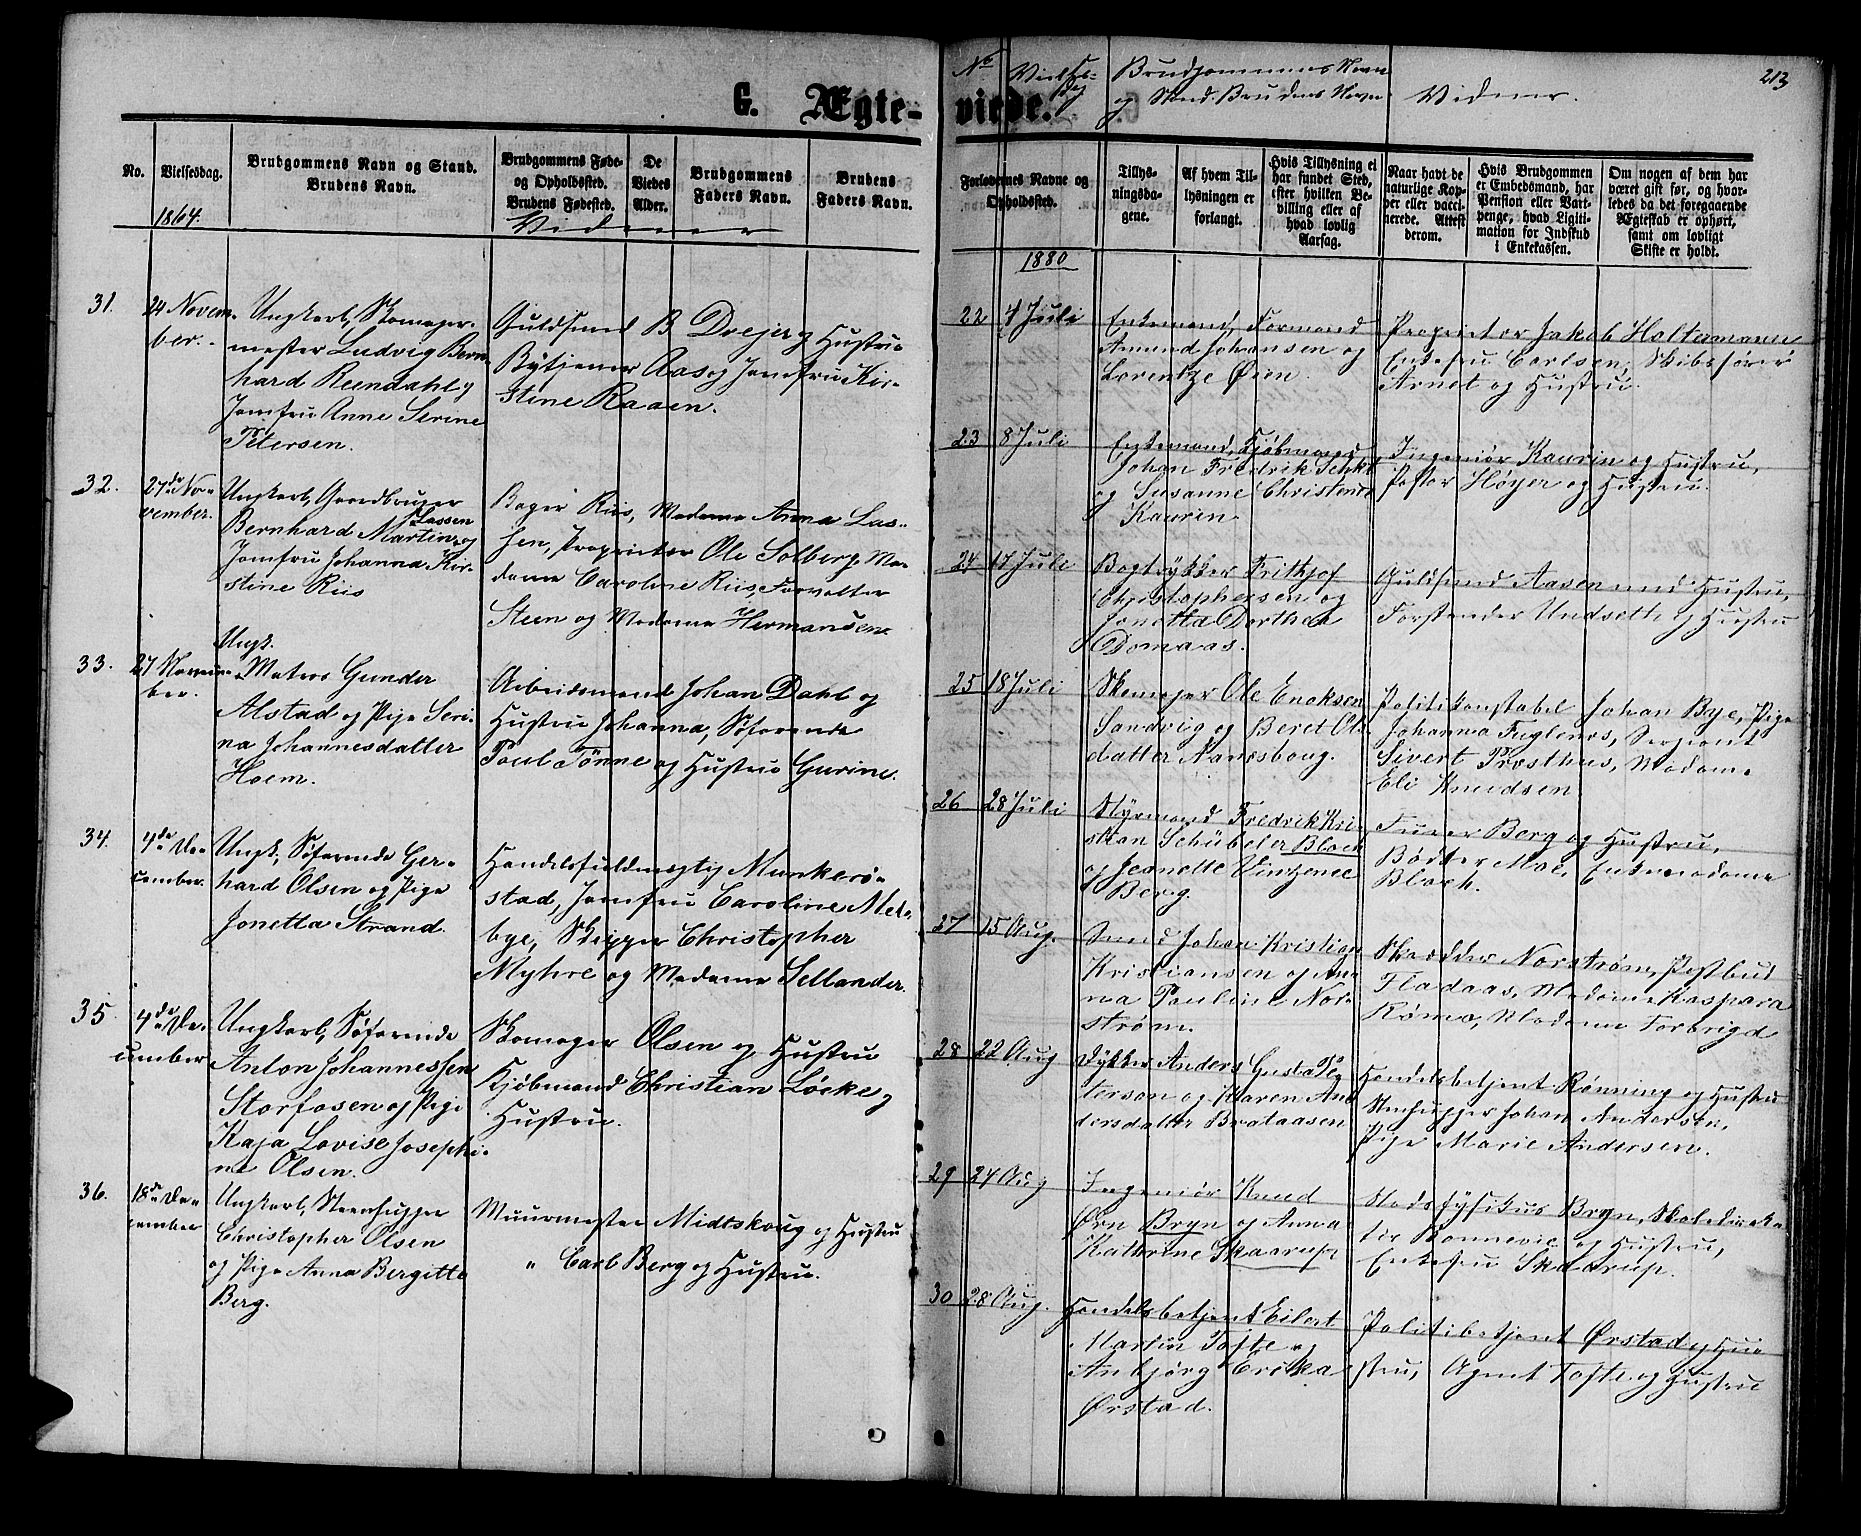 G. Ægte-
No.
Vielsesdag.
Brudgommens Navn og Stand.
Brudens Navn.
Brudgommens Føde-
og Opholdssted.
Brudens Fødested.
De
Viedes
Alder.
Brudgommens
Faders Navn.
Brudens
Faders Navn.
1864.
Vidner
31.
24 Novem-
ber.
Ungkarl, Skomager-
mester Ludvig Bern-
hard Reendahl og
Jomfru Anne Serine
Petersen.
Guldsmed B Dreyer og Hustru
Bytjener Aas og Jomfru Kir-
stine Raaen.
32.
27de No-
vember.
Ungkarl, Gaardbruger
Bernhard Martin Lassen og
Jomfru Johanna Kir-
stine Riis
Bager Riis, Madame Anna Las-
sen, Proprietær Ole Solberg, Ma-
dame Caroline Riis, Forvalter
Steen og Madame Hermansen.
33.
27 Novem-
ber.
Ungk.
Matros Gunder
Alstad og Pige Seri-
na Johannesdatter
Hoem.
Arbeidsmand Johan Dahl og
Hustru Johanna, Søfarende
Poul Tønne og Hustru Gurine.
34.
4de De-
cember.
Ungk, Søfarende Ger-
hard Olsen og Pige
Jonetta Strand.
Handelsfuldmægtig Munkerø-
stad, Jomfru Caroline Mel-
bye, Skipper Christopher
Myhre og Madame Sellander.
35
4de De-
cember
Ungkarl, Søfarende
Anton Johannessen
Storfosen og Pige
Kaja Lovise Josephi-
ne Olsen.
Skomager Olsen og Hustru
Kjøbmand Christian Löcke og
Hustru.
36.
18de De-
cember
Ungkarl, Steenhugger
Christopher Olsen
og Pige Anna Bergitte
Berg.
Muurmester Midtskoug og Hustru
" Carl Berg og Hustru.
viede.
No
Vielses-
dag
Brudgommens Navn
og Stand. Brudens Navn
Vidner.
213
Forlovernes Navne og
Opholdssted.
Tillys-
ningsda-
gene.
Af hvem Til-
lysningen er
forlangt.
Hvis Tillysning ei
har fundet Sted,
efter hvilken Be-
villing eller af
hvad lovlig
Aarsag.
Naar havt de
naturlige Kop-
per eller vacci-
nerede. Attest
derom.
Hvis Brudgommen
er Embedsmand, har
Pension eller Vart-
penge, hvad Ligiti-
mation for Indskud
i Enkekassen.
Om nogen af dem har
været gift før, og hvor-
ledes da det foregaaende
Ægteskab er ophørt,
samt om lovligt
Skifte er holdt.
1880
22
4 Juli
Enkemand, Formand
Amund Johansen og
Lorentze Øien.
Proprietær Jakob Holtermann
Enkefru Carlsen, Skibsfører
Arndt og Hustru.
23
8 Juli
Enkemand, Kjøbmand
Johan Fredrik
og Susanne Christence
Kaurin
Ingeniör Kaurin og Hustru,
Pastor Høyer og Hustru.
24
17 Juli
Bogtrykker Frithjof
Christophersen og
Jonetta Dorthea
Domaas.
Guldsmed Aasen med Hustru,
Forstander Undseth og Hustru
25
18 Juli
Skomager Ole Enoksen
Sandvig og Beret Ols-
datter
Politikonstabel Johan Bye, Pige
Johanna Fuglenes, Sergeant
Sivert Præsthus, Madame
Eli Knudsen
26
28 Juli
Styrmand Fredrik Kri-
stian Schübeler Bloch
og Jeanette Vinzence
Berg.
Furer Berg og Hustru,
Bödker Moe, Enkemadame
Bloch.
27
15 Aug.
Smed Johan Kristian
Kristiansen og An-
na Pauline Nor-
strøm.
Skrædder Norstrøm, Postbud
Fladaas, Madame Kaspara
Rømo, Madame Forbrigd
28
22 Aug
Dykker Anders Gusta Pe-
terson og Karen An-
dersdatter Brataasen
Handelsbetjent Rønning og Hustru
Stenhugger Johan Andersen,
Pige Marie Andersen.
29
24 Aug
Ingeniör Knud
Ørn Bryn og Anna
Kathrine Skaarup
Stadsfysikus Bryn, Skoledirek-
tör Bonnevie og Hustru,
Enkefru Skaarup.
30
28 Aug.
Handelsbetjent Eilert
Martin Tofte og
Anbjørg Erika
Ørstad.
Politibetjent Ørstad og Hu-
stru, Agent Tofte og Hustru